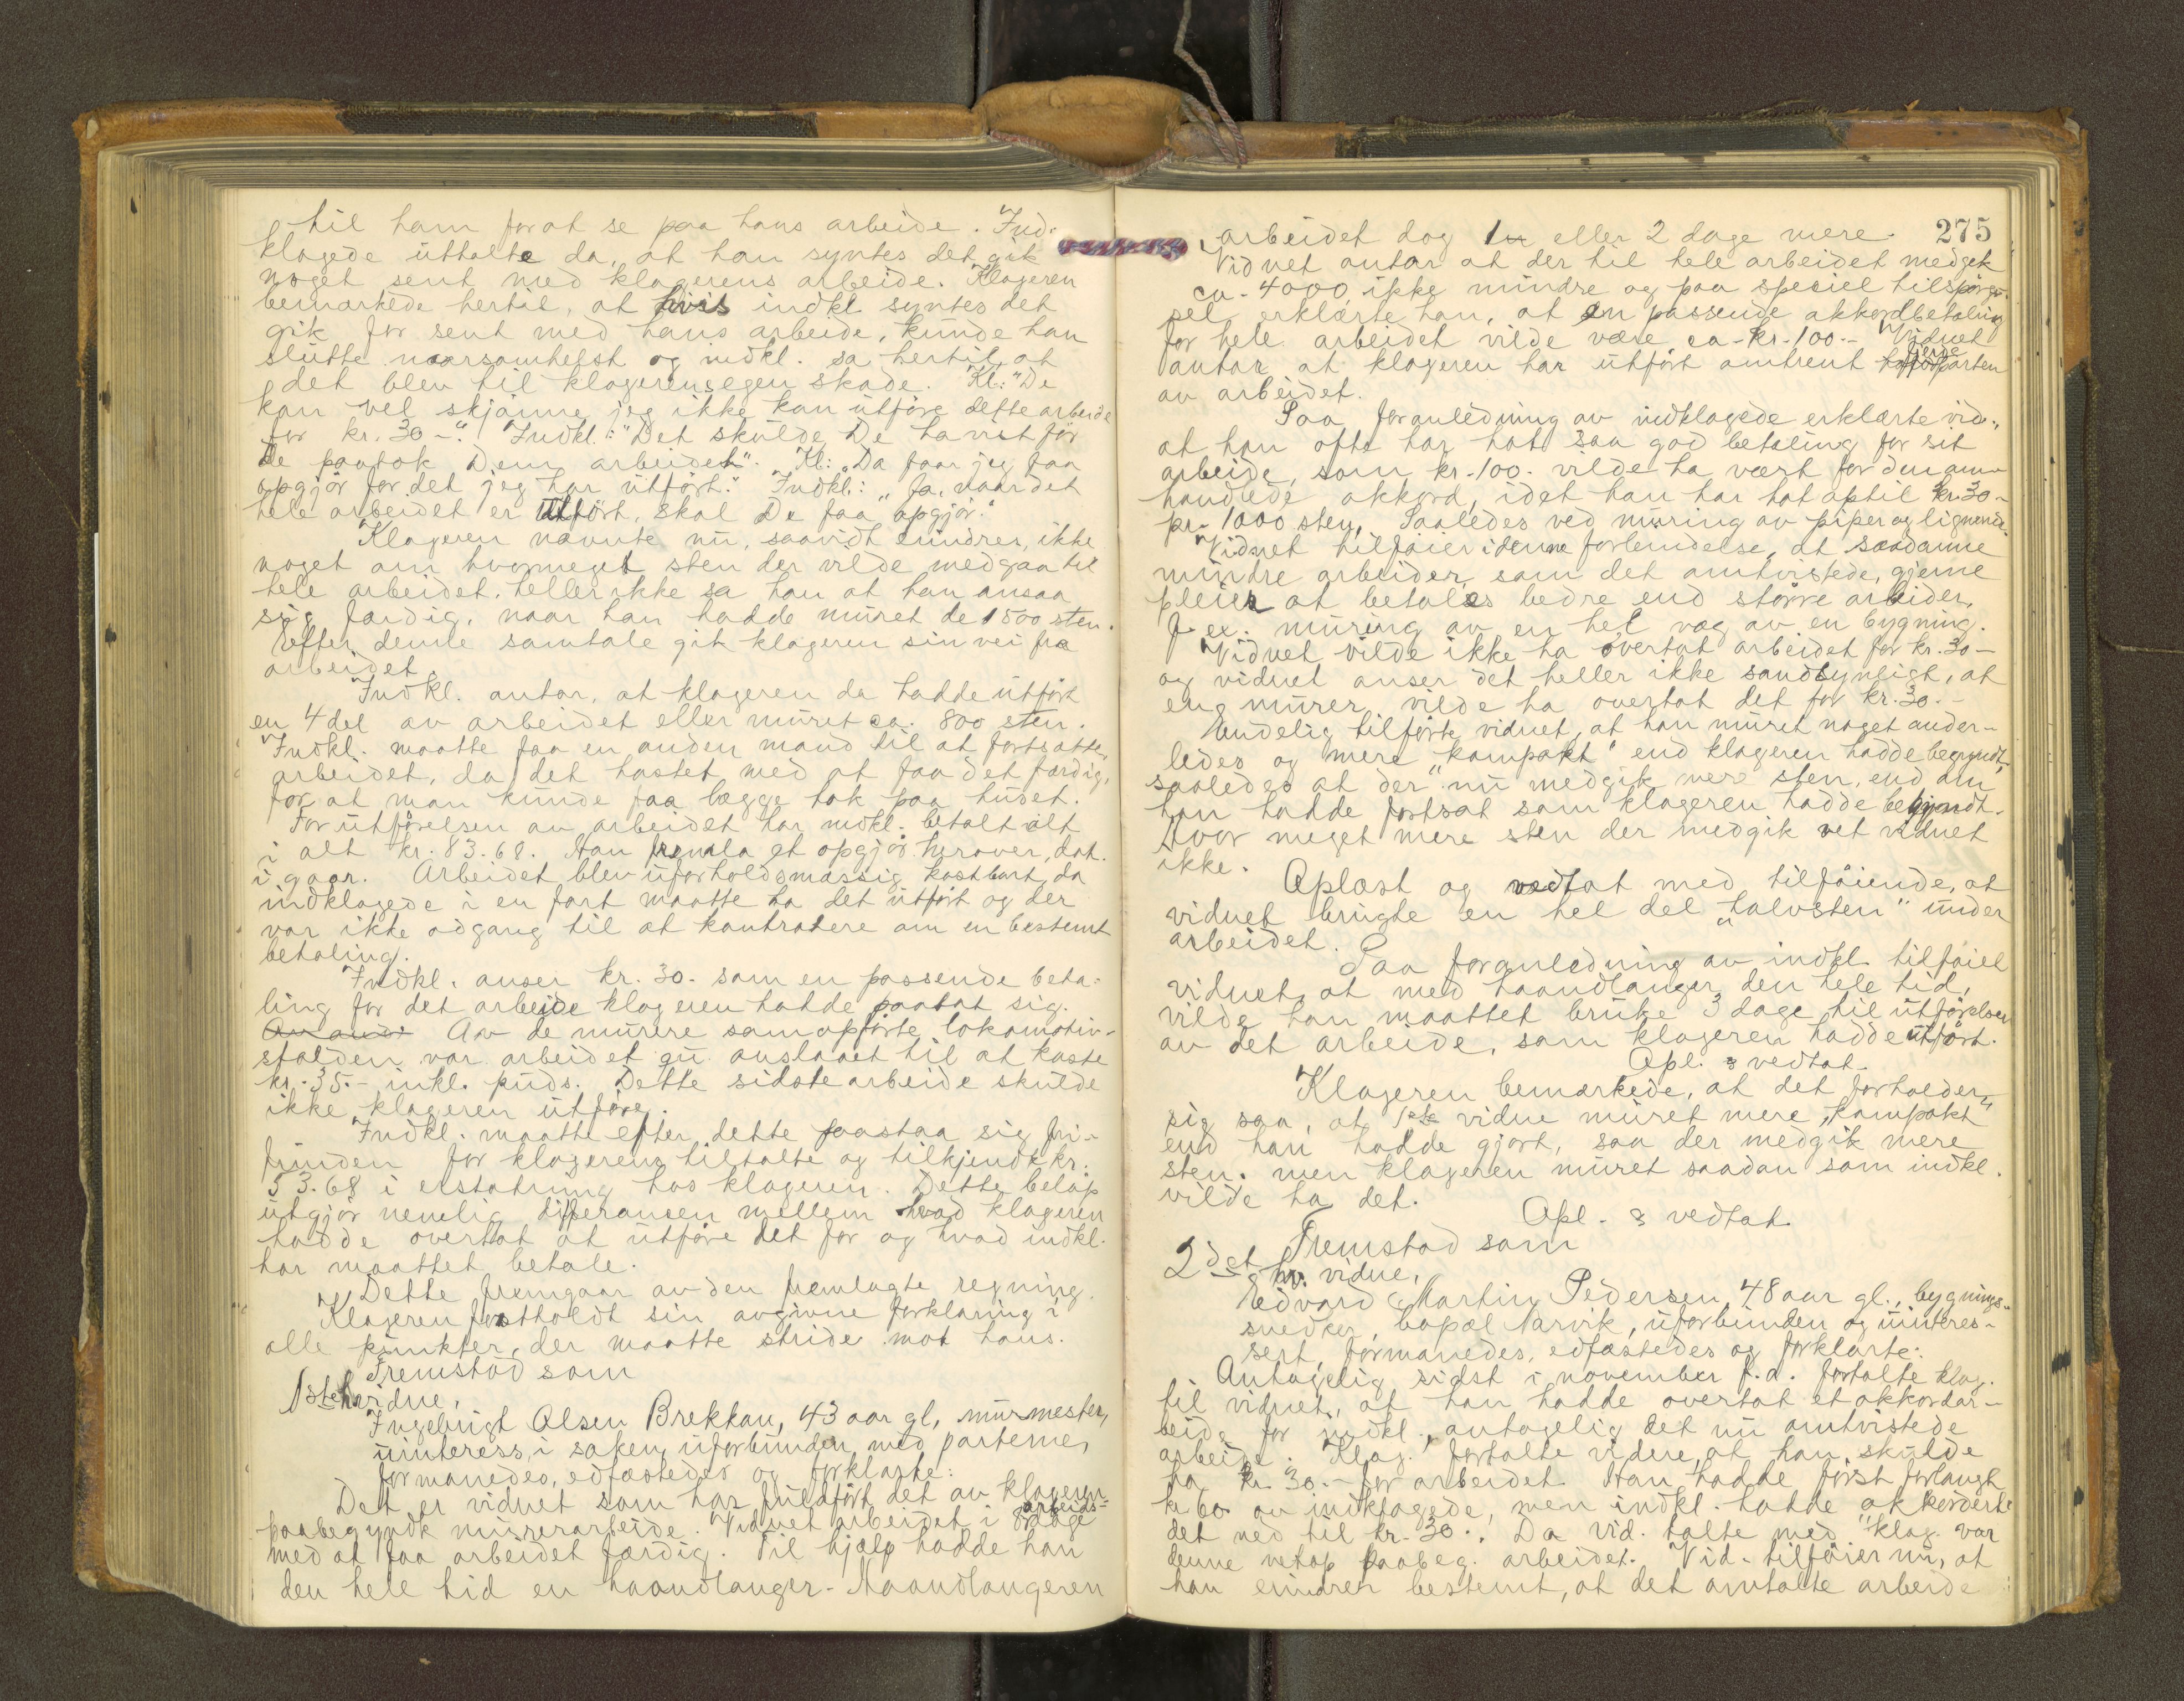 til ham for at se paa hans arbeide. Ind-
klagede uttalte da, at han syntes det gik
noget sent med klagerens arbeide. Klageren
bemærkede hertil, at hvis indkl syntes det
gik for sent med hans arbeide, kunde han
slutte naarsomhelst og indkl. sa hertil at
det blev til klagerens egen skade. Kl: "De
kan vel skjønne jeg ikke kan utføre dette arbeide
for kr. 30-." Indkl.: "Det skulde De ha vist før
De paatok Dem arbeidet". Kl: "Da faar jeg faa
opgjør for det jeg har utført." Indkl.: "Ja, naar det
hele arbeidet er utført, skal De faa opgjør."
Klageren nævnte nu, saavidt erindres, ikke
noget om hvormeget sten der vilde medgaa til
hele arbeidet, heller ikke sa han at han ansaa
sig færdig, naar han hadde muret de 1500 sten.
Efter denne samtale gik klageren sin vei fra
arbeidet.
Indkl. antar, at klageren da hadde utført
en 4 del av arbeidet eller muret ca. 800 sten.
Indkl. maatte faa en anden mand til at fortsætte
arbeidet, da det hastet med at faa det færdig,
for at man kunde faa lægge tak paa huset.
For utførelsen av arbeidet har indkl. betalt alt
i alt kr. 83.68. Han fremla et opgjør herover, dat.
i gaar. Arbeidet blev uforholdsmæssig kostbart, da
indklagede i en fart maatte ha det utført og der
var ikke adgang til at kontrahere om en bestemt
betaling.
Indkl. anser kr. 30.- som en passende beta-
ling for det arbeide klageren hadde paatat sig.
Av de murere som opførte lokomotiv-
stalden var arbeidet gu anslaaet til at koste
kr. 35.- inkl. puds. Dette sidste arbeide skulde
ikke klageren utføre.
Indkl. maatte efter dette paastaa sig fri-
funden for klagerens tiltalte og tilkjendt kr.
53.68 i erstatning hos klageren. Dette beløp
utgjør nemlig differansen mellem hvad klageren
hadde overtat at utføre det for og hvad indkl.
har maattet betale.
Dette fremgaar av den fremlagte regning.
Klageren fastholdt sin avgivne forklaring i
alle punkter, der maatte stride mot hans.
Fremstod som
1ste hr. vidne,
Ingebrigt Olsen Brekkan, 43 aar gl, murmester,
uinteress. i saken, uforbunden med parterne,
formanedes, edfæstedes og forklarte:
Det er vidnet som har fuldført det av klageren
paabegyndte murerarbeide. Vidnet arbeidet i 8 arbeids-
dage
med at faa arbeidet færdig. Til hjælp hadde han
den hele tid en haandlanger. Haandlangeren
275
arbeidet dog 1 eller 2 dage mere.
Vidnet antar at der til hele arbeidet medgik
ca. 4000, ikke mindre og paa speciel tilspørg-
sel erklærte han, at en passende akkordbetaling
for hele arbeidet vilde være ca. kr. 100.- Vidnet
antar at klageren har utført omtrent fjerdeparten
av arbeidet.
Paa foranledning av indklagede erklærte vid.,
at han ofte har hat saa god betaling for sit
arbeide, som kr. 100.- vilde ha vært for den om-
handlede akkord, idet han har hat optil kr. 30-
pr. 1000 sten, saaledes ved muring av piper og lignende.
Vidnet tilføier i denne forbindelse, at saadanne
mindre arbeider, som det omtvistede, gjerne
pleier at betales bedre end større arbeider,
f. ex. muring av en hel væg av en bygning.
Vidnet vilde ikke ha overtat arbeidet for kr. 30-
og vidnet anser det heller ikke sandsynligt, at
eng murer vilde ha overtat det for kr. 30.-
Endelig tilførte vidnet, at han muret noget ander-
ledes og mere "kompakt" end klageren hadde begyndt,
saaledes at der nu medgik mere sten, end om
han hadde fortsat som klageren hadde begyndt.
Hvor meget mere sten der medgik vet vidnet
ikke.
Oplæst og vedtat med tilføiende, at
vidnet brugte en hel del "halvsten" under
arbeidet.
Paa foranledning av indkl. tilføiet
vidnet, at med haandlanger den hele tid,
vilde han maattet bruke 3 dage til utførelsen
av det arbeide, som klageren hadde utført.
Opl. & vedtat.
Klageren bemærkede, at det forholder
sig saa, at 1ste vidne muret mere "kompakt"
end han hadde gjort, saa der medgik mere
sten, men klageren muret saadan som indkl.
vilde ha det.
Opl. & vedtat.
Fremstod som
2det hr. vidne,
Edvard Martin Pedersen, 48 aar gl., bygnings-
snedker, bopæl Narvik, uforbunden og uinteres-
sert, formanedes, edfæstedes og forklarte:
Antagelig sidst i november f.a. fortalte klag.
til vidnet, at han hadde overtat et akkordar-
beide for indkl., antagelig det nu omtvistede
arbeide. Klag. fortalte videre, at han skulde
ha kr. 30.- for arbeidet. Han hadde først forlangt
kr 60 av indklagede, men indkl. hadde akkorderte
det ned til kr. 30.-. Da vid. talte med klag. var
denne netop paabeg. arbeidet. Vid. tilføier nu, at
han erindrer bestemt, at det omtalte arbeide